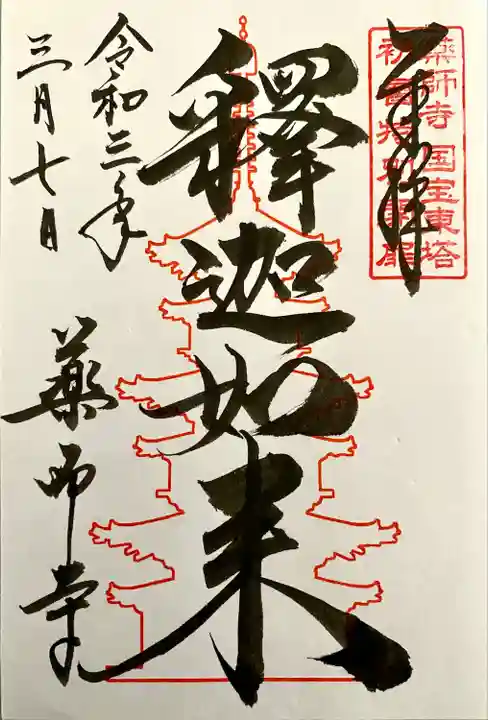 奉拝
薬師寺 国宝東塔
初層特別開扉
釋迦如来
令和三年
三月七日
薬師寺